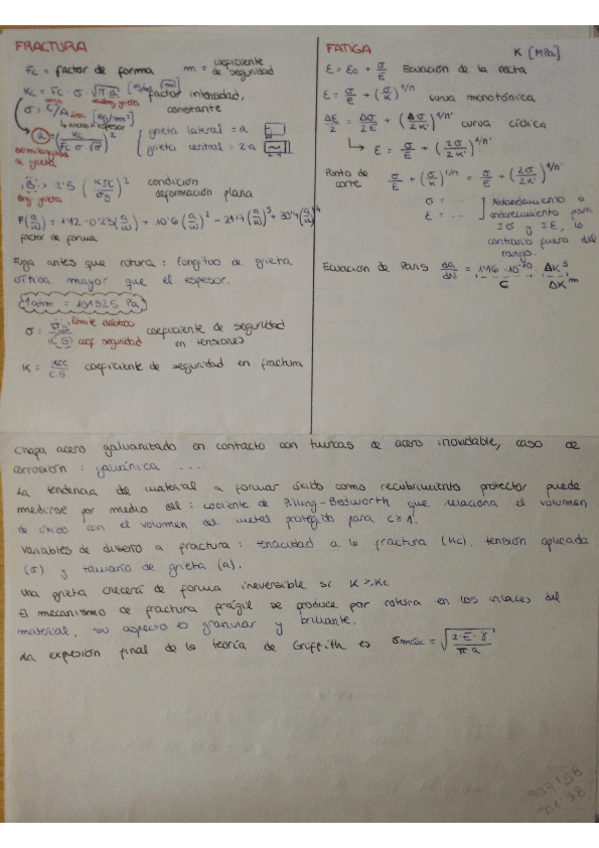 FRACTURA
Fc = factor de forma m = coeficiente de seguridad
Kc = Fc σ · √(π a) [Mpa √m] factor intensidad,
σ = C/A [kg/mm²] constante
carga área
ancho × espesor
semilongitud grieta
(a) = (Kc / (Fc σ √π))²
{ grieta lateral = a
grieta central = 2a
semilongitud
a grieta
B > 2'5 (KIC / σo)² condición
deformación plana
F(a/w) = 1'12 - 0'23(a/w) + 10'6(a/w)² - 21'7(a/w)³ + 30'4(a/w)⁴
factor de forma
Fuga antes que rotura: longitud de grieta
crítica mayor que el espesor.
1 atm = 101325 Pa
σ = σo / (C.S) coeficiente de seguridad
límite elástico
coef seguridad en tensiones
K = KIC / C.S. coeficiente de seguridad en fractura
FATIGA K [MPa]
ε = εo + σ/E Ecuación de la recta
ε = σ/E + (σ/K)^1/n curva monotónica
Δε/2 = Δσ/2E + (Δσ/2K')^1/n' curva cíclica
↳ ε = σ/E + (2σ/2K')^1/n'
Punto de corte σ/E + (σ/K)^1/n = σ/E + (2σ/2K')^1/n'
σ = ...
ε = ...
] Ablandamiento o
endurecimiento para
Iσ y Iε, lo
contrario fuera del
rango.
Ecuacion de Paris da/dN = 1'16 · 10^-20 · ΔK³
C ΔK^m
Chapa acero galvanizado en contacto con tuercas de acero inoxidable, caso de
corrosión: galvánica ....
La tendencia del material a formar óxido como recubrimiento protector puede
medirse por medio del: cociente de Pilling-Bedworth que relaciona el volumen
de óxido con el volumen del metal protegido para c≥1.
Variables de diseño a fractura: tenacidad a la fractura (Kc), tensión aplicada
(σ) y tamaño de grieta (a).
Una grieta crecerá de forma irreversible si K ≥ Kc
El mecanismo de fractura frágil se produce por rotura en los enlaces del
material, su aspecto es granular y brillante.
La expresión final de la teoría de Griffith es σmáx = √(2·E·γ / π a)